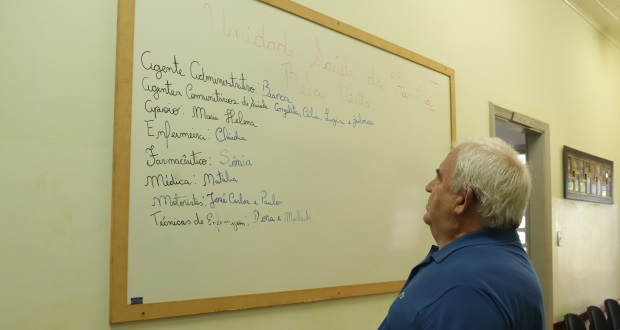 Unidade Saúde da Família
Bela Vista
Agente Administrativo: Bianca
Agentes Comunitários de Saúde: Célia, e
Apoio: Maria Helena
Enfermeira: Cláudia
Farmacêutico: Sônia
Médica: Natália
Motoristas: José Carlos e Paulo
Técnicas de Enfermagem: Dora e